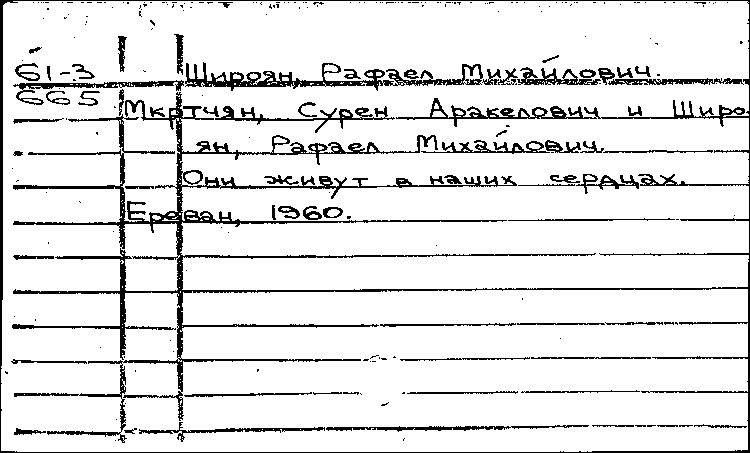 61-3 Широян, Рафаел Михайлович.
665 Мкртчян, Сурен Аракелович и Широ-
ян, Рафаел Михайлович.
Они живут в наших сердцах.
Ереван, 1960.